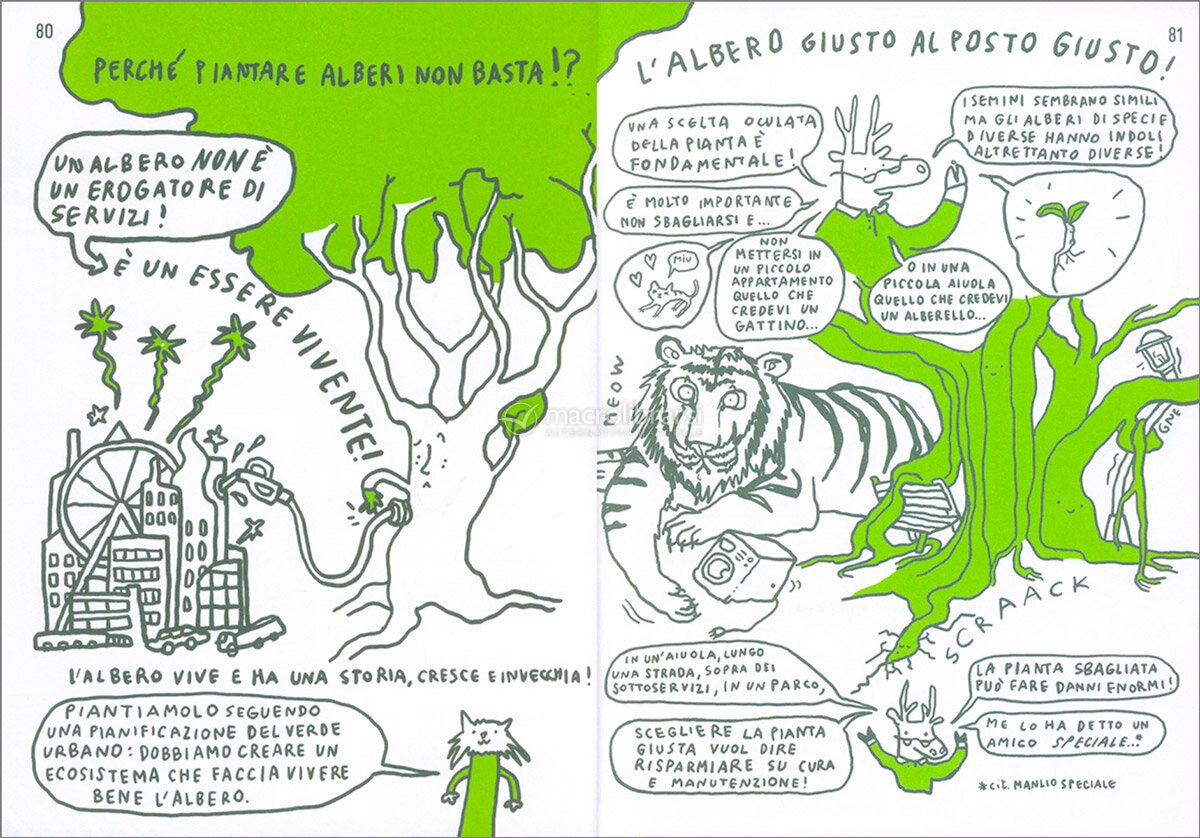 80
PERCHÉ PIANTARE ALBERI NON BASTA!?
UN ALBERO NON È
UN EROGATORE DI
SERVIZI!
È UN ESSERE VIVENTE!
L'ALBERO VIVE E HA UNA STORIA, CRESCE E INVECCHIA!
PIANTIAMOLO SEGUENDO
UNA PIANIFICAZIONE DEL VERDE
URBANO: DOBBIAMO CREARE UN
ECOSISTEMA CHE FACCIA VIVERE
BENE L'ALBERO.
81
L'ALBERO GIUSTO AL POSTO GIUSTO!
UNA SCELTA OCULATA
DELLA PIANTA È
FONDAMENTALE!
I SEMINI SEMBRANO SIMILI
MA GLI ALBERI DI SPECIE
DIVERSE HANNO INDOLI
ALTRETTANTO DIVERSE!
È MOLTO IMPORTANTE
NON SBAGLIARSI E...
MIU
NON
METTERSI IN
UN PICCOLO
APPARTAMENTO
QUELLO CHE
CREDEVI UN
GATTINO...
O IN UNA
PICCOLA AIUOLA
QUELLO CHE CREDEVI
UN ALBERELLO...
MEOW
GNE
macrolibrarsi
SCRAACK
IN UN'AIUOLA, LUNGO
UNA STRADA, SOPRA DEI
SOTTOSERVIZI, IN UN PARCO,
SCEGLIERE LA PIANTA
GIUSTA VUOL DIRE
RISPARMIARE SU CURA
E MANUTENZIONE!
LA PIANTA SBAGLIATA
PUÒ FARE DANNI ENORMI!
ME LO HA DETTO UN
AMICO SPECIALE..*
*cit. MANLIO SPECIALE